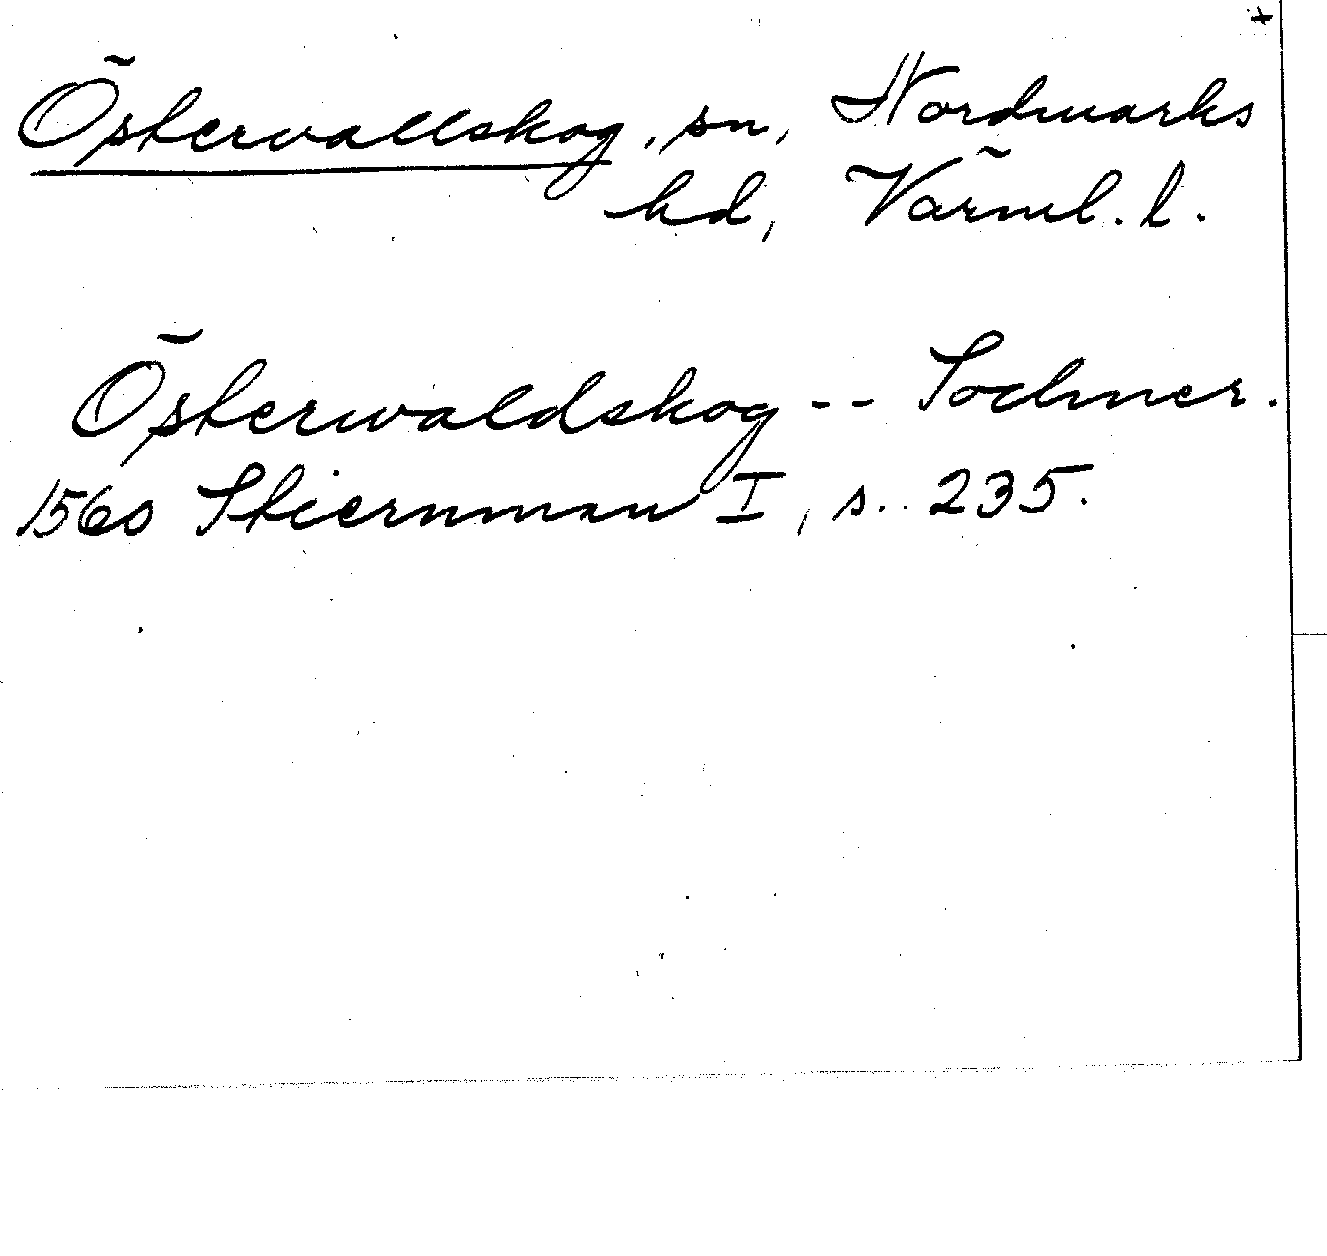 Östervallskog, sn, Nordmarks
hd, Värml. l.
Österwaldskog -- Sochner.
1560 Stiernman I, s. 235.